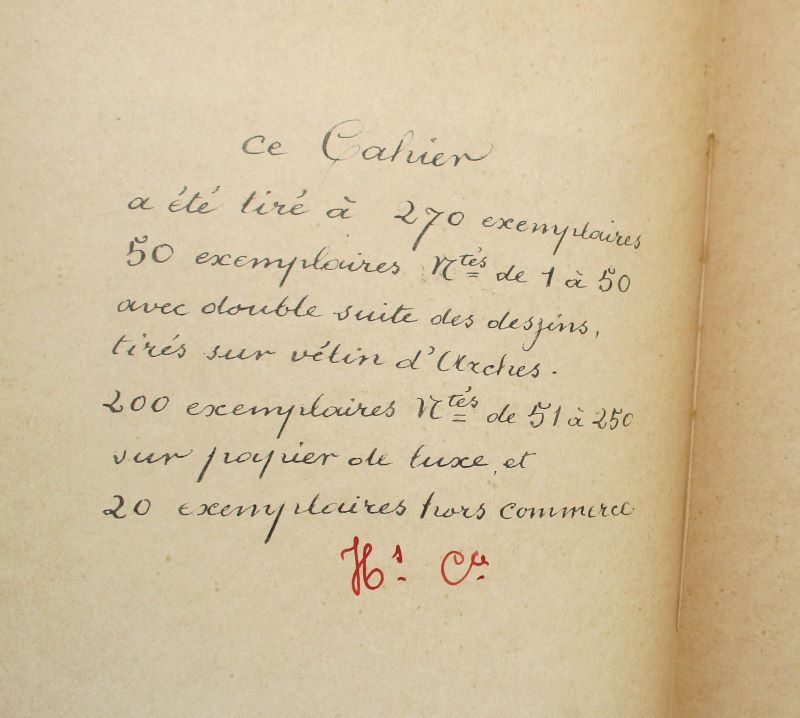 ce Cahier
a été tiré à 270 exemplaires
50 exemplaires Ntés de 1 à 50
avec double suite des deszins,
tirés sur vélin d'Arches.
200 exemplaires Ntés de 51 à 250
sur papier de luxe, et
20 exemplaires hors commerce
Hs. Ce.